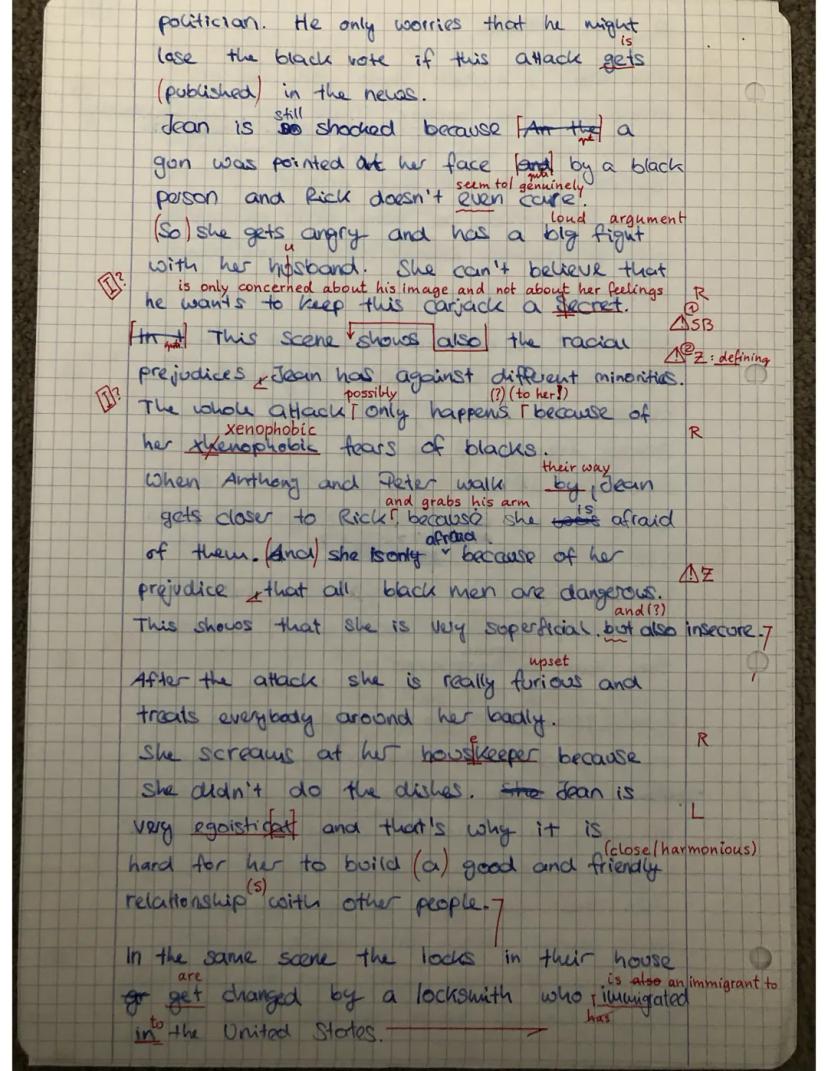 politician. He only worries that he might
is
lose the black vote if this attack gets
(published) in the news.
still
Jean is so shocked because [An the] a
gun was pointed at her face [and] by a black
seem to/ genuinely
person and Rick doesn't even care.
loud argument
(So) she gets angry and has a big fight
u
with her husband. She can't believe that
I? is only concerned about his image and not about her feelings R
he wants to keep this carjack a secret.
① ⚠SB
[In t] This scene shows also the racial
⚠② Z: defining
prejudices, Jean has against different minorities.
I? possibly (?) (to her!)
The whole attack only happens because of
xenophobic R
her xhenophobic fears of blacks.
their way
When Anthony and Peter walk by, Jean
and grabs his arm is
gets closer to Rick, because she was afraid
afraid
of them. (And) she is only because of her
⚠Z
prejudice, that all black men are dangerous.
and (?)
This shows that she is very superficial but also insecure.
upset
After the attack she is really furious and
treats everybody around her badly.
e R
She screams at her houskeeper because
she didn't do the dishes. She Jean is
L
very egoistic[al] and that's why it is
(close/harmonious)
hard for her to build (a) good and friendly
(s)
relationship with other people.
In the same scene the locks in their house
are is also an immigrant to
gr get changed by a locksmith who immigrated
to has
in the United States.